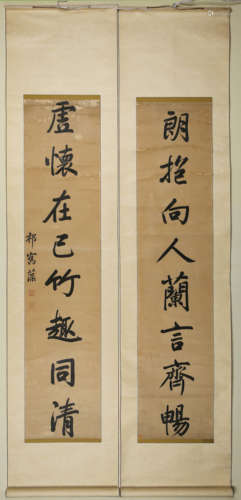 朗抱向人蘭言齊暢
虛懷在己竹趣同清
祁寯藻